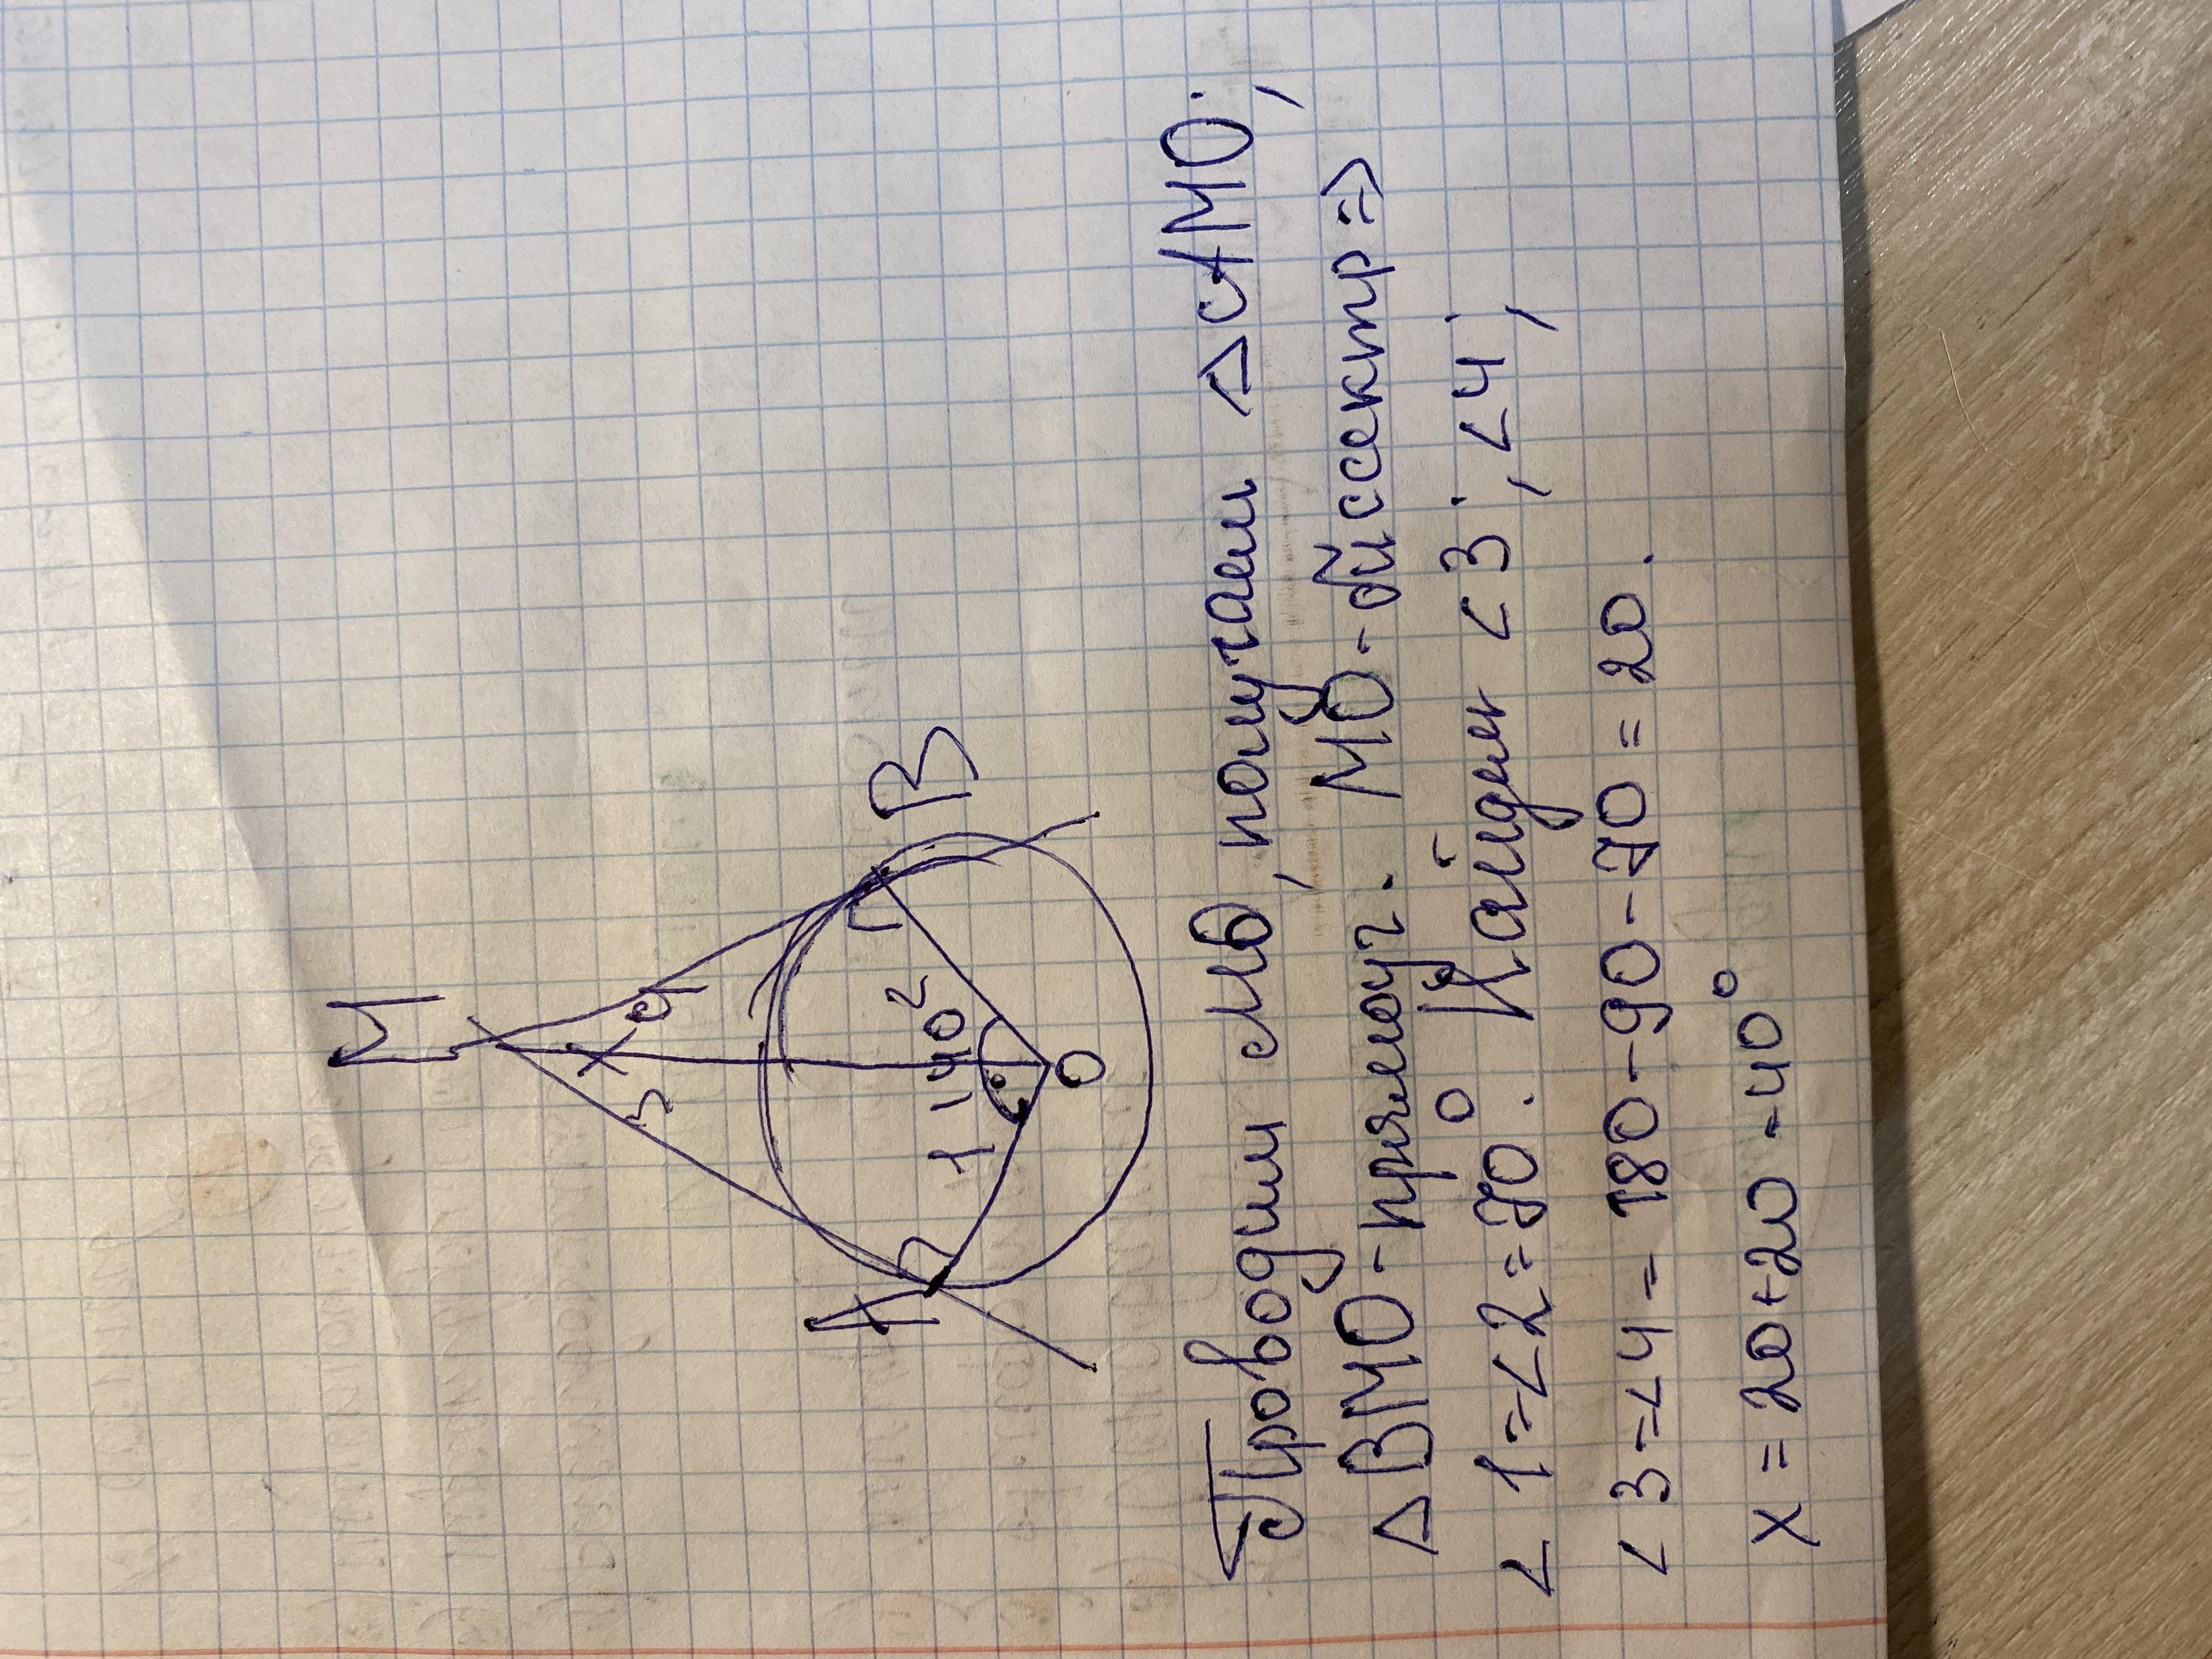 М
x
3 4
А
В
1 140° 2
О
Проводим МО, получаем △АМО;
△ВМО-прямоуг. МО-биссектр=>
<1=<2=70°. Найдем <3;<4;
<3=<4= 180-90-70=20.
x=20+20=40°